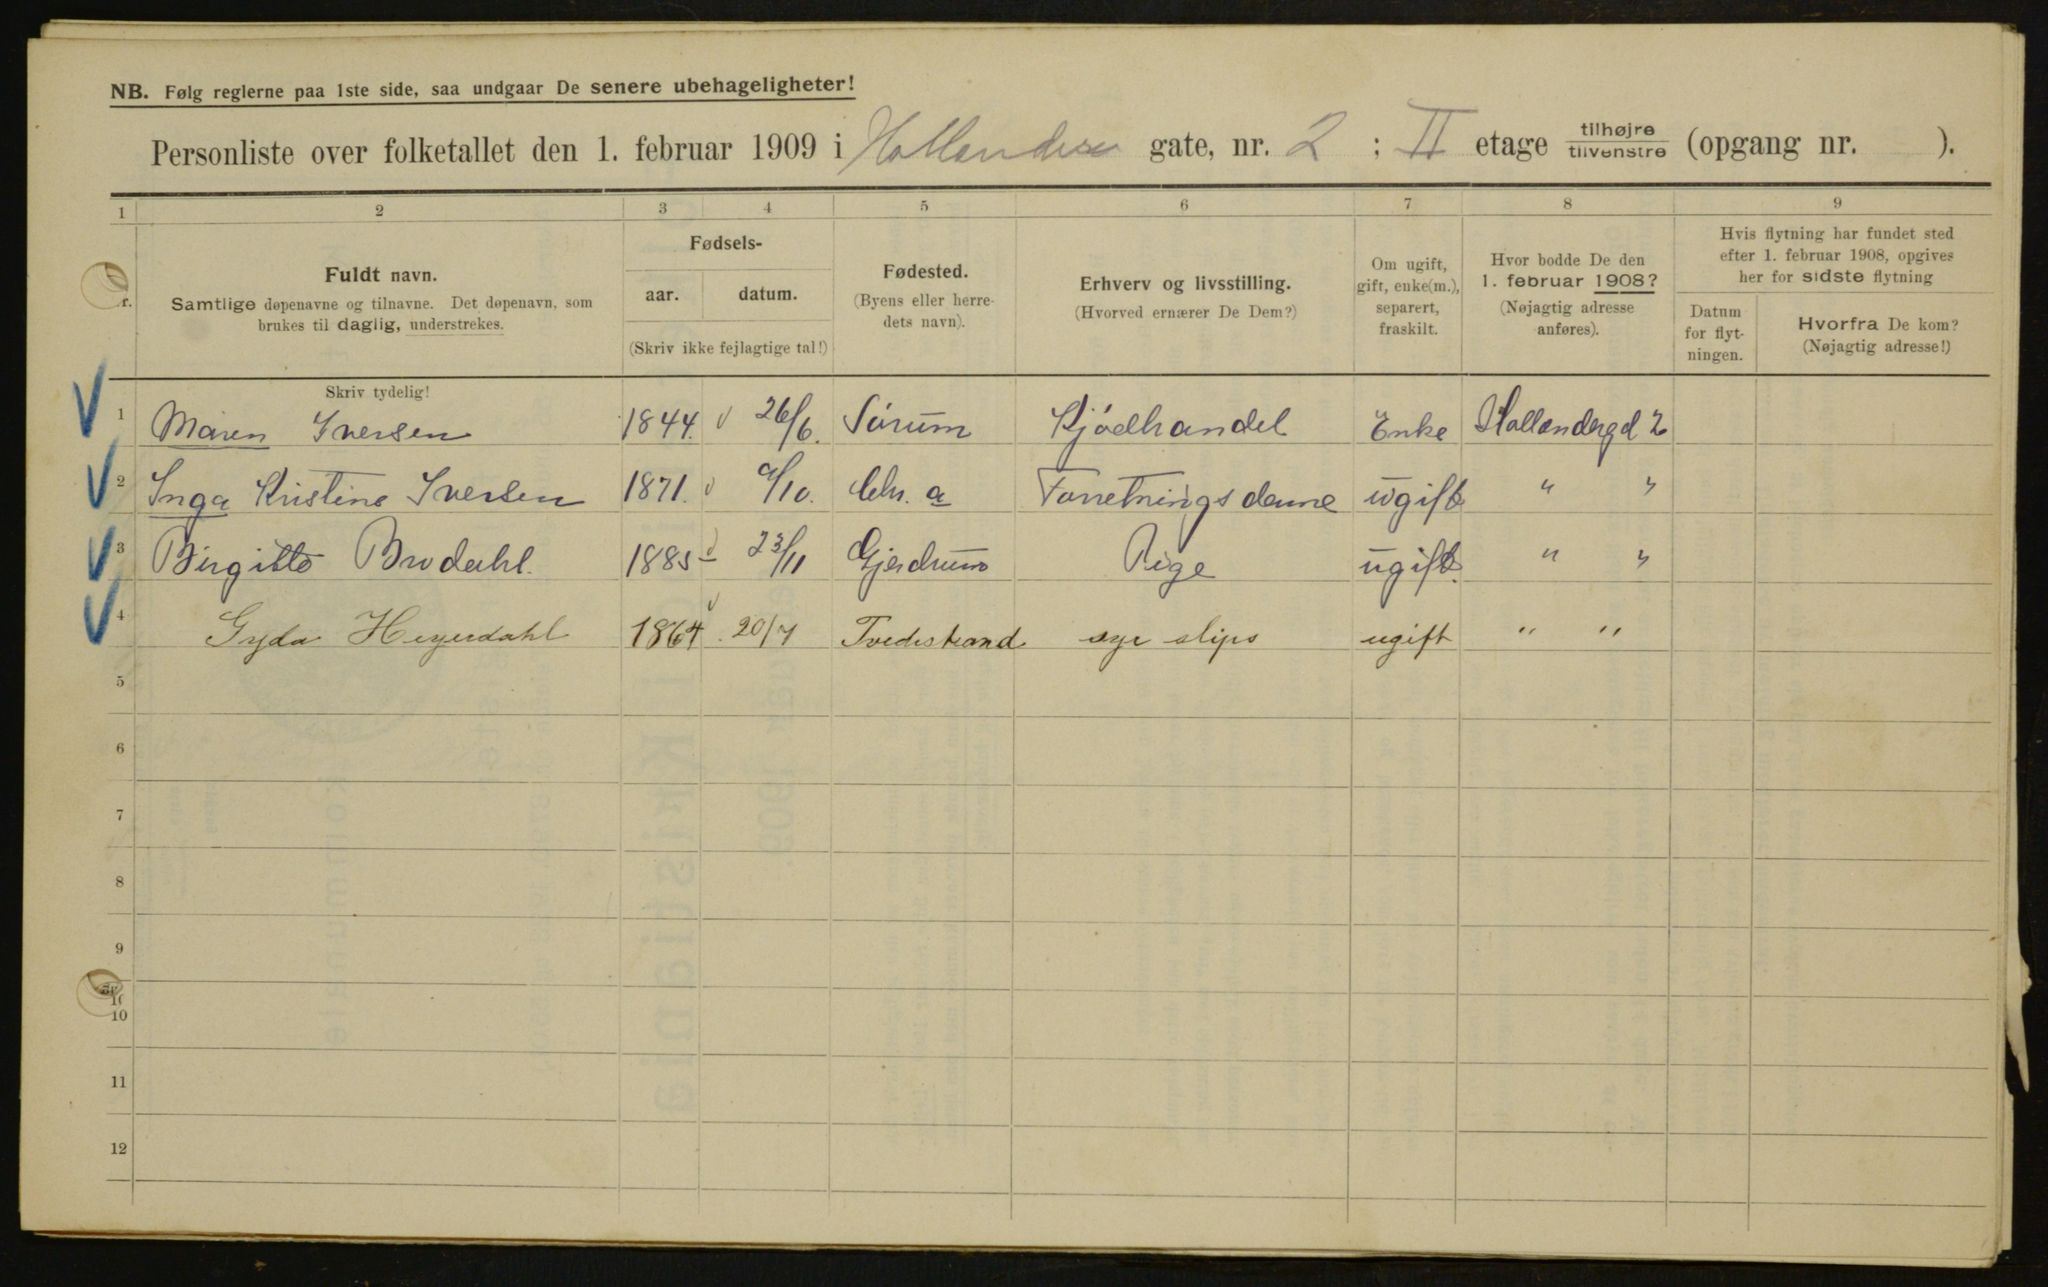 NB. Følg reglerne paa 1ste side, saa undgaar De senere ubehageligheter!
Personliste over folketallet den 1. februar 1909 i Hollender gate, nr. 2 ; II etage tilhøjre tilvenstre (opgang nr. ).
1 2 3 4 5 6 7 8 9
Fuldt navn.
Samtlige døpenavne og tilnavne. Det døpenavn, som
brukes til daglig, understrekes.
Skriv tydelig!
Fødsels-
aar. datum.
(Skriv ikke fejlagtige tal!)
Fødested.
(Byens eller herre-
dets navn).
Erhverv og livsstilling.
(Hvorved ernærer De Dem?)
Om ugift,
gift, enke(m.),
separert,
fraskilt.
Hvor bodde De den
1. februar 1908?
(Nøjagtig adresse
anføres).
Hvis flytning har fundet sted
efter 1. februar 1908, opgives
her for sidste flytning
Datum
for flyt-
ningen.
Hvorfra De kom?
(Nøjagtig adresse!)
1 Maren Iversen 1844. 26/6. Sørum Kjødhandel Enke Hollendergd 2
2 Inga Kristine Iversen 1871. 9/10. Chr. a Forretningsdame ugift " "
3 Birgitte Brodahl. 1885 23/11 Gjerdrum Pige ugift. " "
4 Gyda Heyerdahl 1864. 20/7 Tvedestrand syr slips ugift " "
5
6
7
8
9
10
11
12